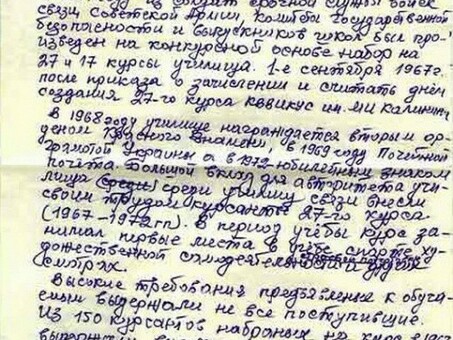 году из солдат срочной службы войск
связи Советской Армии, Комитета Государственной
безопасности и выпускников школ был про-
изведен на конкурсной основе набор на
27 и 17 курсы училища. 1-е сентября 1967г.
после приказа о зачислении и считать днём
создания 27-го курса КВВИКУС им. МИ Калинина
В 1968 году училище награждается вторым ор-
деном Красного Знамени, в 1969 году Почётной
грамотой Украины а в 1972-юбилейным знаком
почёта. Большой вклад для авторитета учи-
лища среди училищ связи внесли
своим трудом курсанты 27-го курса
(1967-1972гг). В период учёбы курс за-
нимал первые места в учёбе, спорте, ху-
дожественной самодеятельности и других
смотрах.
Высокие требования предъявленные к обуча-
емым выдержали не все поступившие.
Из 150 курсантов набранных на курс в 1967